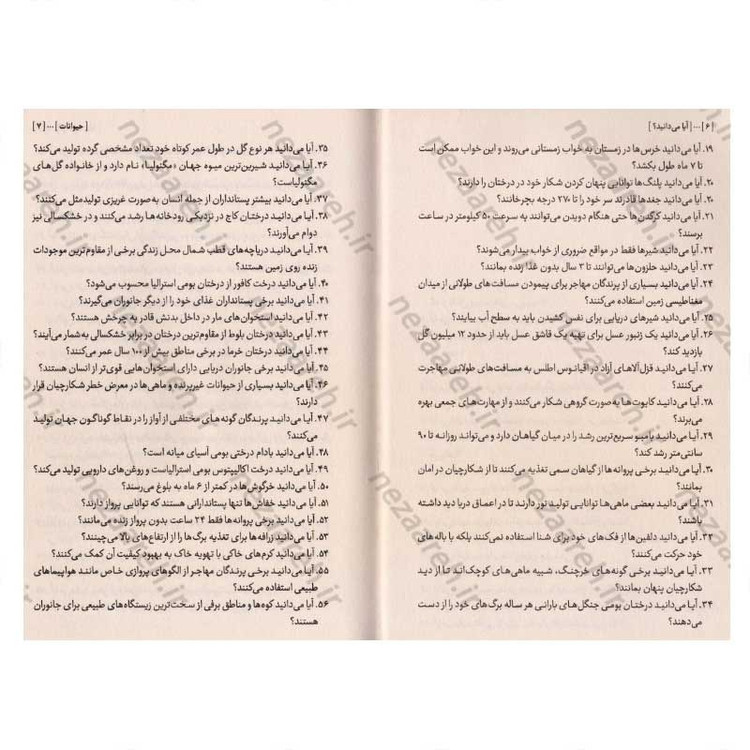 [ ۶ ] ... | آیا می‌دانید؟ ]
۱۹. آیا می‌دانید خرس‌ها در زمستان به خواب زمستانی می‌روند و این خواب ممکن است
تا ۷ ماه طول بکشد؟
۲۰. آیا می‌دانید پلنگ‌ها توانایی پنهان کردن شکار خود در درختان را دارند؟
۲۰. آیا می‌دانید جغدها قادرند سر خود را تا ۲۷۰ درجه بچرخانند؟
۲۱. آیا می‌دانید کرگدن‌ها حتی هنگام دویدن می‌توانند به سرعت ۵۰ کیلومتر در ساعت
برسند؟
۲۲. آیا می‌دانید شیرها فقط در مواقع ضروری از خواب بیدار می‌شوند؟
۲۳. آیا می‌دانید حلزون‌ها می‌توانند تا ۳ سال بدون غذا زنده بمانند؟
۲۴. آیا می‌دانید بسیاری از پرندگان مهاجر برای پیمودن مسافت‌های طولانی از میدان
مغناطیسی زمین استفاده می‌کنند؟
۲۵. آیا می‌دانید شیرهای دریایی برای نفس کشیدن باید به سطح آب بیایند؟
۲۶. آیا می‌دانید یک زنبور عسل برای تهیه یک قاشق عسل باید از حدود ۱۲ میلیون گل
بازدید کند؟
۲۷. آیا می‌دانید قزل‌آلاهای آزاد در اقیانوس اطلس به مسافت‌های طولانی مهاجرت
می‌کنند؟
۲۸. آیا می‌دانید کایوت‌ها به‌صورت گروهی شکار می‌کنند و از مهارت‌های جمعی بهره
می‌برند؟
۲۹. آیا می‌دانید بامبو سریع‌ترین رشد را در میان گیاهان دارد و می‌تواند روزانه تا ۹۰
سانتی‌متر رشد کند؟
۳۰. آیا می‌دانید برخی پروانه‌ها از گیاهان سمی تغذیه می‌کنند تا از شکارچیان در امان
بمانند؟
۳۱. آیا می‌دانید بعضی ماهی‌ها توانایی تولید نور دارند تا در اعماق دریا دید داشته
باشند؟
۳۲. آیا می‌دانید دلفین‌ها از فک‌های خود برای شنا استفاده نمی‌کنند بلکه با باله‌های
خود حرکت می‌کنند؟
۳۳. آیا می‌دانید برخی گونه‌های خرچنگ، شبیه ماهی‌های کوچک‌اند تا از دید
شکارچیان پنهان بمانند؟
۳۴. آیا می‌دانید درختان بومی جنگل‌های بارانی هر ساله برگ‌های خود را از دست
می‌دهند؟
[ حیوانات ] ... [ ۷ ]
۳۵. آیا می‌دانید هر نوع گل در طول عمر کوتاه خود تعداد مشخصی گرده تولید می‌کند؟
۳۶. آیا می‌دانید شیرین‌ترین میوه جهان «مگنولیا» نام دارد و از خانواده گل‌های
مگنولیاست؟
۳۷. آیا می‌دانید بیشتر پستانداران از جمله انسان به‌صورت غریزی تولیدمثل می‌کنند؟
۳۸. آیا می‌دانید درختان کاج در نزدیکی رودخانه‌ها رشد می‌کنند و در خشکسالی نیز
دوام می‌آورند؟
۳۹. آیا می‌دانید دریاچه‌های قطب شمال محل زندگی برخی از مقاوم‌ترین موجودات
زنده روی زمین هستند؟
۴۰. آیا می‌دانید درخت کافور از درختان بومی استرالیا محسوب می‌شود؟
۴۱. آیا می‌دانید برخی پستانداران غذای خود را از دیگر جانوران می‌گیرند؟
۴۲. آیا می‌دانید استخوان‌های مار در داخل بدنش قادر به چرخش هستند؟
۴۳. آیا می‌دانید درختان بلوط از مقاوم‌ترین درختان در برابر خشکسالی به‌شمار می‌آیند؟
۴۴. آیا می‌دانید درختان خرما در برخی مناطق بیش از ۱۰۰ سال عمر می‌کنند؟
۴۵. آیا می‌دانید برخی جانوران دریایی دارای استخوان‌هایی قوی‌تر از انسان هستند؟
۴۶. آیا می‌دانید بسیاری از حیوانات غیرپرنده و ماهی‌ها در معرض خطر شکارچیان قرار
دارند؟
۴۷. آیا می‌دانید پرندگان گونه‌های مختلفی از آواز را در نقاط گوناگون جهان تولید
می‌کنند؟
۴۸. آیا می‌دانید بادام درختی بومی آسیای میانه است؟
۴۹. آیا می‌دانید درخت اکالیپتوس بومی استرالیاست و روغن‌های دارویی تولید می‌کند؟
۵۰. آیا می‌دانید خرگوش‌ها در کمتر از ۶ ماه به بلوغ می‌رسند؟
۵۱. آیا می‌دانید خفاش‌ها تنها پستاندارانی هستند که توانایی پرواز دارند؟
۵۲. آیا می‌دانید برخی پروانه‌ها فقط ۲۴ ساعت بدون پرواز زنده می‌مانند؟
۵۳. آیا می‌دانید زرافه‌ها برای تغذیه برگ‌ها را از ارتفاع‌های بالا می‌چینند؟
۵۴. آیا می‌دانید کرم‌های خاکی با تهویه خاک به بهبود کیفیت آن کمک می‌کنند؟
۵۵. آیا می‌دانید برخی پرندگان مهاجر از الگوهای پروازی خاص مانند هواپیماهای
طبیعی استفاده می‌کنند؟
۵۶. آیا می‌دانید کوه‌ها و مناطق برفی از سخت‌ترین زیستگاه‌های طبیعی برای جانوران
هستند؟
nezaareh.ir